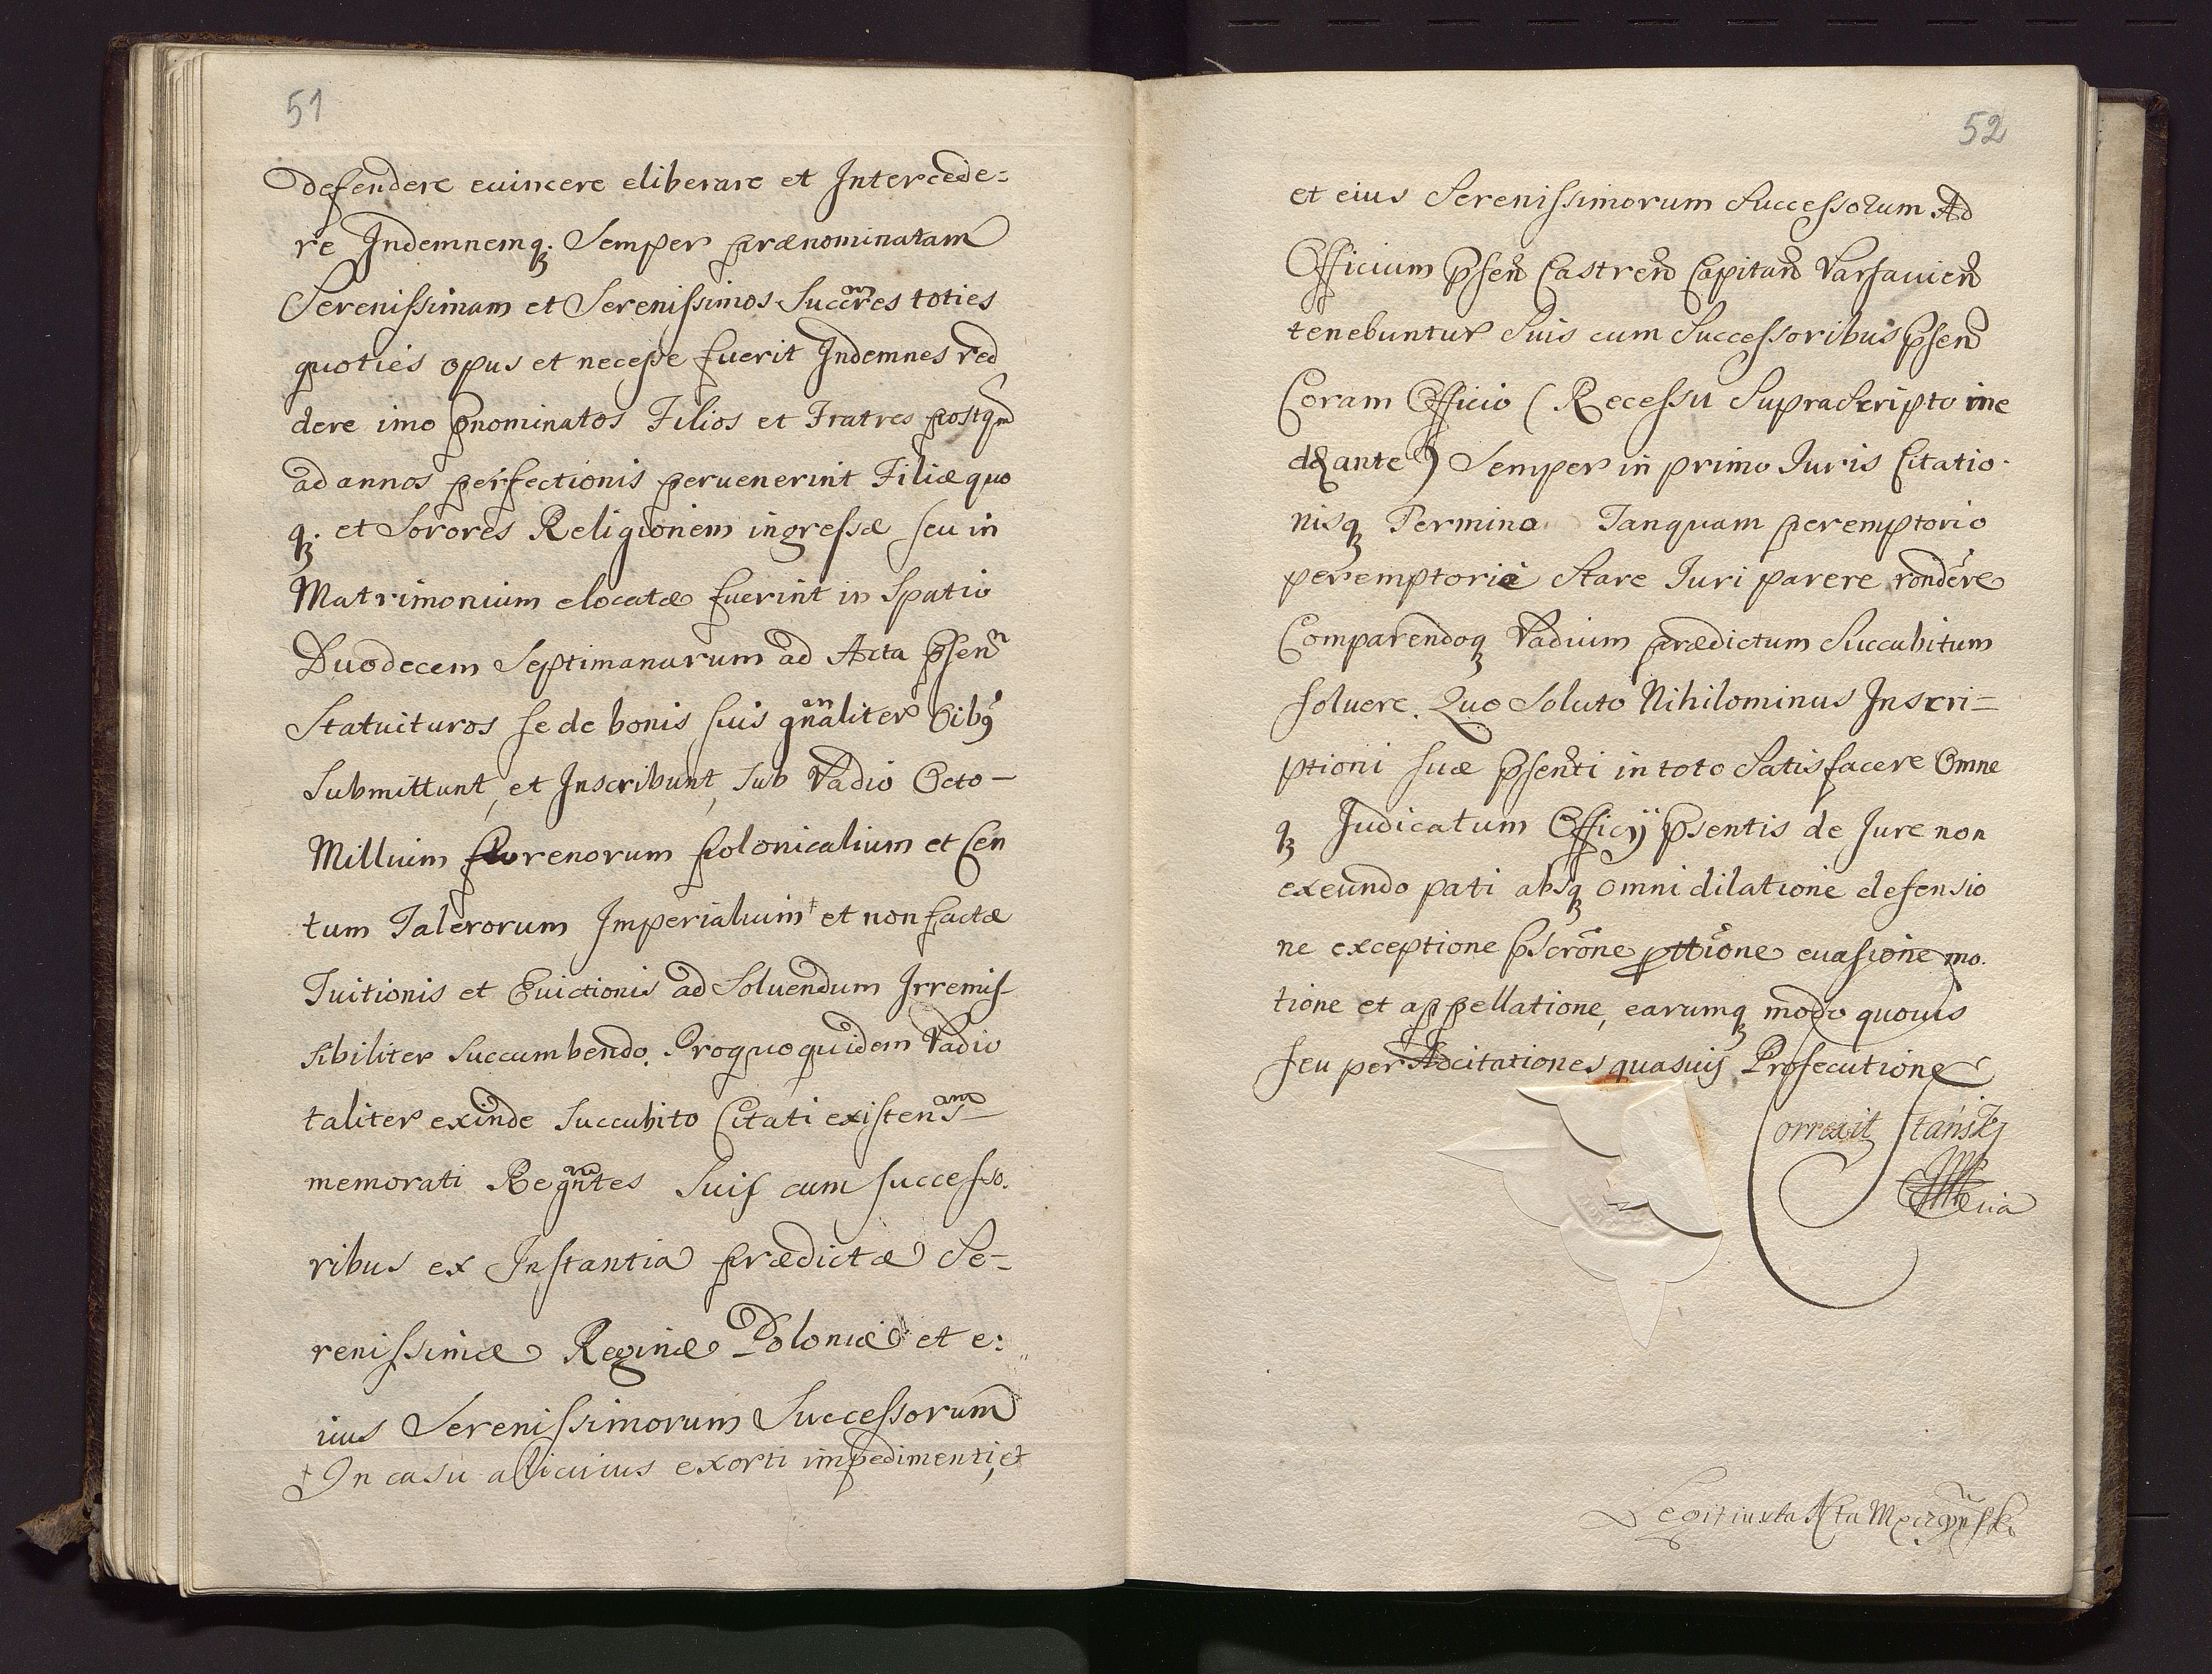 51
defendere euincere eliberare et Intercede=
re Indemnemq3 Semper prænominatam
Serenissimam et Serenissimos Succres toties
quoties opus et necesse fuerit Indemnes red
dere imo pnominatos Filios et Fratres postqm
ad annos perfectionis peruenerint Filiæ quo
q3. et Sorores Religionem ingressæ seu in
Matrimonium elocatæ fuerint in Spatio
Duodecem Septimanarum ad Acta psen
Statuituros se de bonis suis gnaliter oibq
Submittunt, et Inscribunt, sub Vadio Octo-
Millium florenorum polonicalium et Cen
tum Talerorum Imperialium† et non factæ
Tuitionis et Euictionis ad Soluendum Irremis-
sibiliter Succumbendo. Pro quo quidem Vadio
taliter exinde Succubito Citati existen
memorati Regntes Suis cum successo.
ribus ex Instantia prædictæ Se-
renissimæ Reginæ Poloniæ et e:
ius Serenissimorum Successorum
† In casu alicuius exorti impedimenti, et
52
et eius Serenissimorum Successorum Ad
Officium psen Castren Capitan Varsauien
tenebuntur Suis cum Successoribus psen
Coram Officio (Recessu Suprascripto ine
ante) Semper in primo Iuris Citatio-
nisq3 Termino Tanquam peremptorio
peremptorie Stare Iuri parere rondere
Comparendoq3 Vadium prædictum Succubitum
soluere. Quo Soluto Nihilominus Inscri=
ptioni suæ psenti in toto Satisfacere Omne
q3 Judicatum Officij psentis de Jure non
exeundo pati absq3 omni dilatione defensio
ne exceptione pscrone pttione euasione mo.
tione et appellatione, earumq3 modo quouis
seu per Adcitationes quasuis Prosecutione
Correxit
Legit iuxta Acta